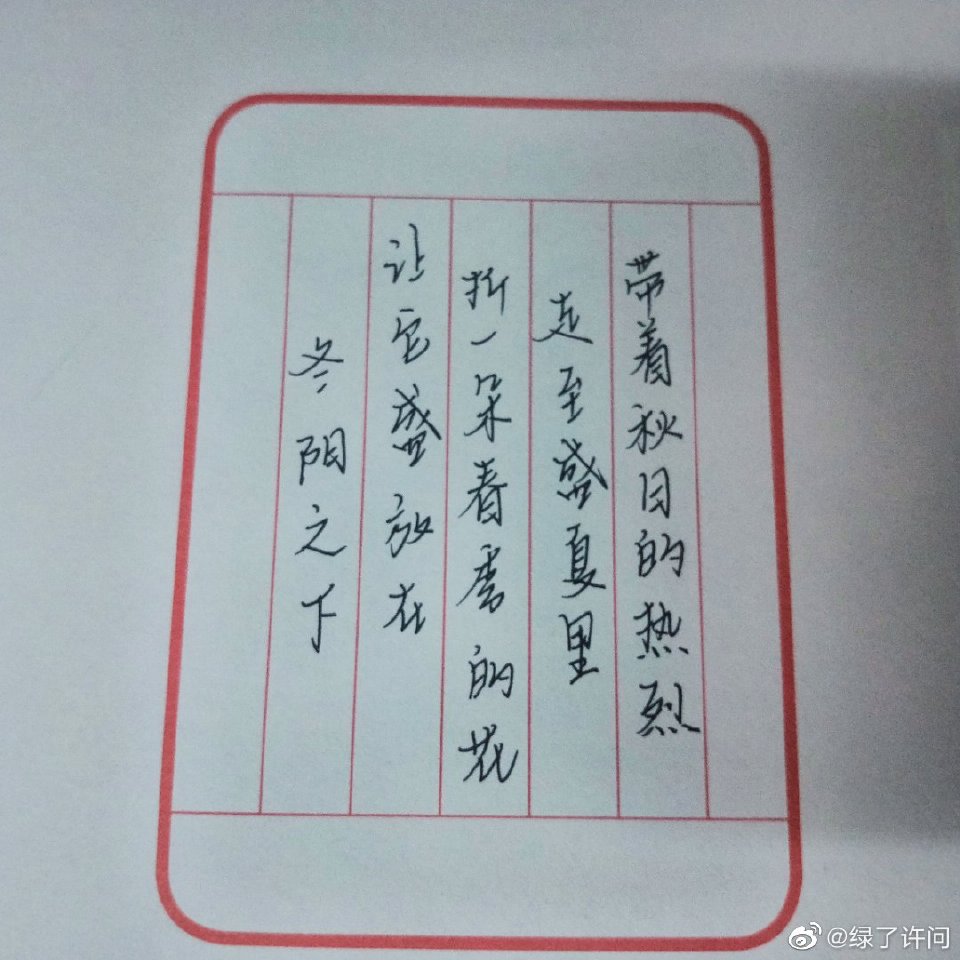 带着秋日的热烈
走至盛夏里
折一朵春季的花
让它盛放在
冬阳之下
@绿了许问